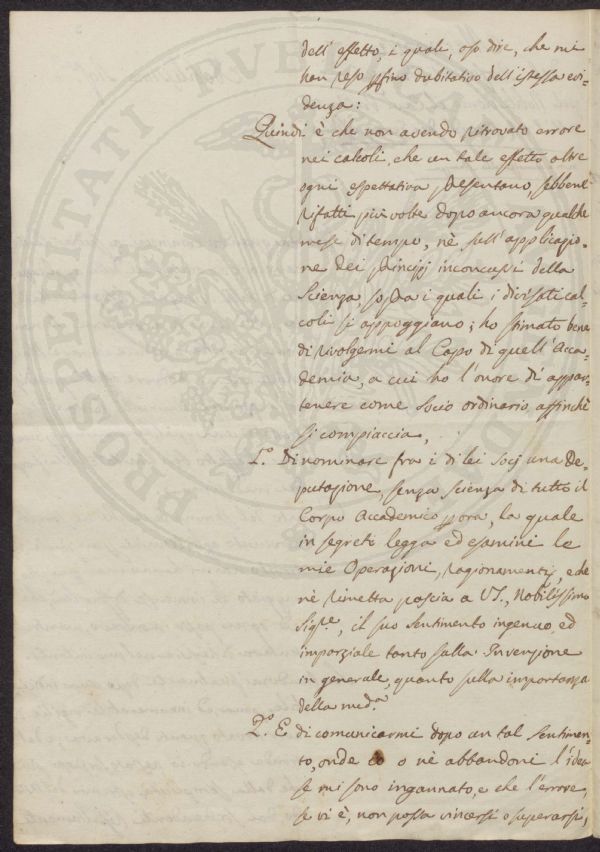 dell' effetto, i quale, oso dire, che mi
han reso pfino dubitativo dell' istessa evi-
denza:
Quindi è che non avendo ritrovato errore
nei calcoli, che un tale effetto oltre
ogni espettativa presentano, sebbene
rifatti più volte dopo ancora qualche
mese di tempo, nè sull' applicazio-
ne dei principj inconcussi della
Scienza, sopra i quali i divisati cal-
coli si appoggiano; ho stimato bene
di rivolgermi al Capo di quell' Acca-
demia, a cui ho l'onore di appar-
tenere come socio ordinario, affinchè
si compiaccia,
1.° Di nominare fra i di lei socj una De-
putazione, senza scienza di tutto il
Corpo Accademico pora, la quale
in segreto legga ed esamini le
mie Operazioni, ragionamenti, e che
nè rimetta poscia a VS., Nobilissimo
Sig.re, il suo sentimento ingenuo, ed
imparziale tanto sulla Invenzione
in generale, quanto sulla importanza
della med.a
2.° E di comunicarmi dopo un tal sentimen-
to, onde io o nè abbandoni l'idea
se mi sono ingannato, e che l'errore,
se vi è, non possa vincersi o superarsi,
PROSPERITATI PVBLICAE